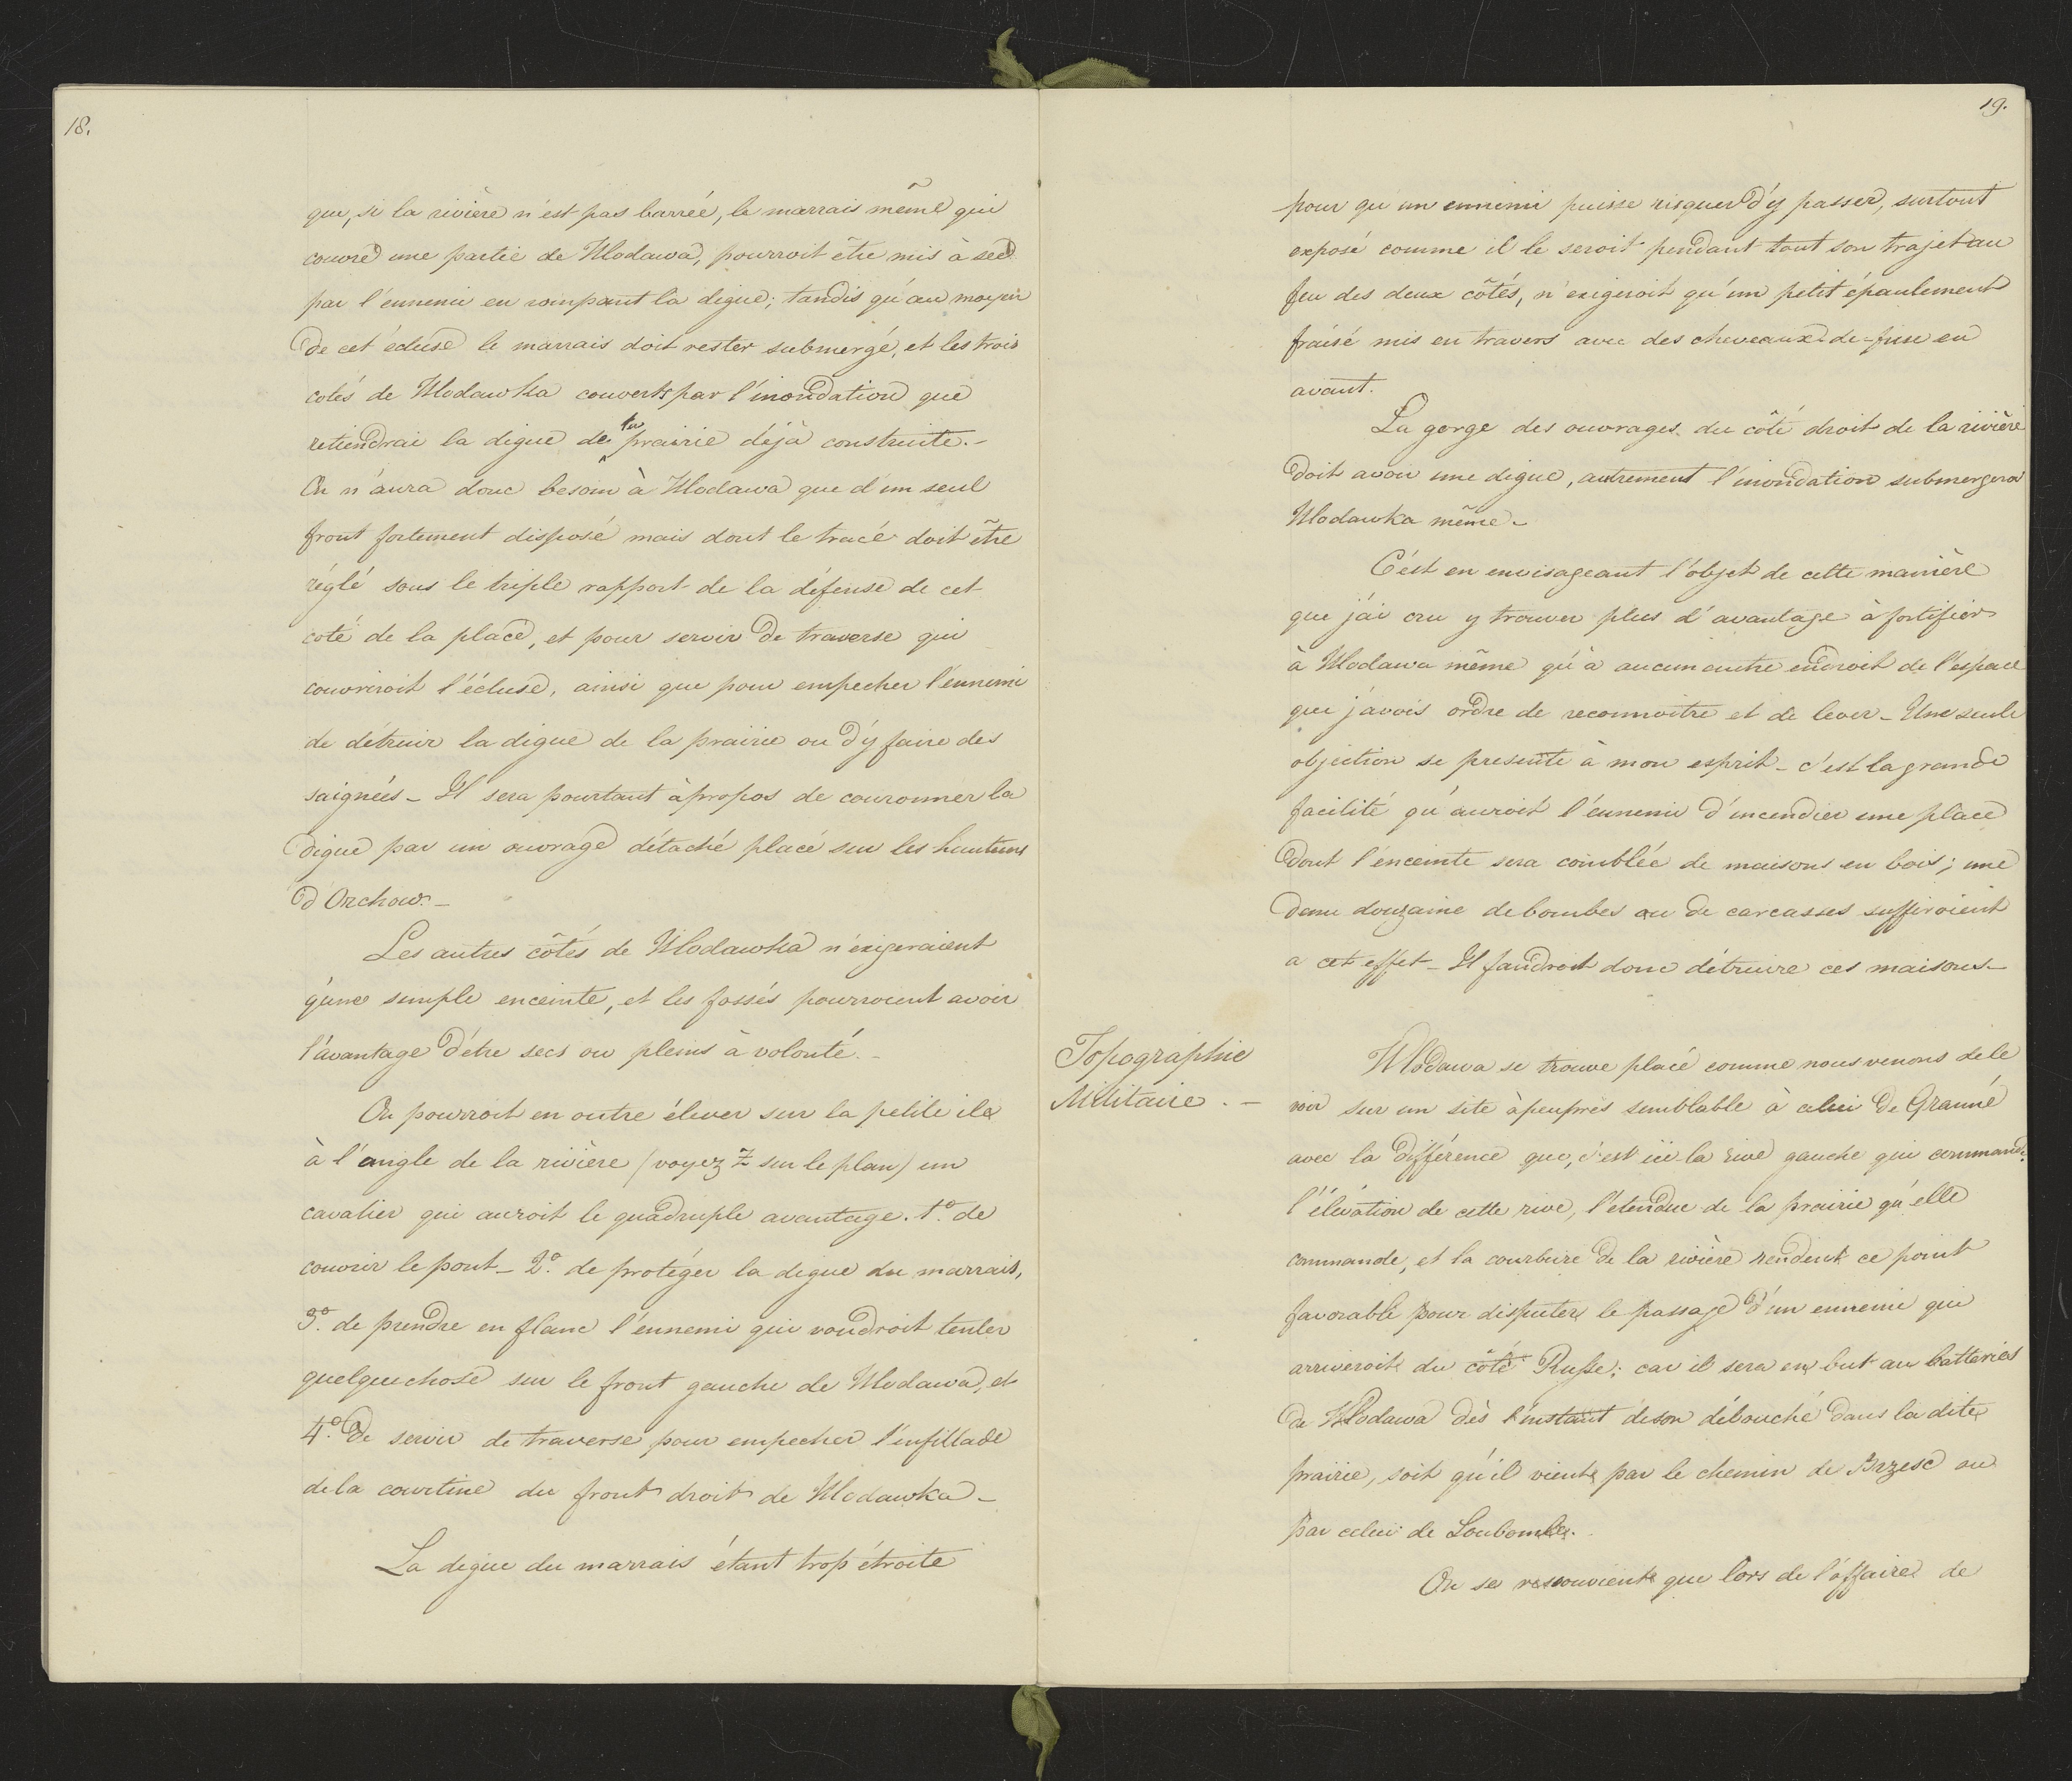 18.
que, si la rivière n'est pas barrée, le marrais même qui
couvre une partie de Wlodawa, pourroit être mis à sec
par l'ennemi en rompant la digue; tandis qu'au moyen
de cet écluse le marrais doit rester submergé, et les trois
cotés de Wlodawka couverts par l'inondation que
retiendrai la digue de la prairie déjà construite.-
On n'aura donc besoin à Wlodawa que d'un seul
front fortement disposé mais dont le tracé doit être
réglé sous le triple rapport de la défense de cet
coté de la place, et pour servir de traverse qui
couvriroit l'écluse, ainsi que pour empecher l'ennemi
de détruir la digue de la prairie ou d'y faire des
saignées - Il sera pourtant àpropos de couronner la
digue par un ouvrage détaché placé sur les hauteurs
d'Orchow. -
Les autres côtés de Wlodawka n'éxigeraient
qu'une simple enceinte, et les fossés pourroient avoir
l'avantage d'étre secs ou pleins à volonté. -
On pourroit en outre élever sur la petite ile
à l'angle de la rivière (voyez Z sur le plan) un
cavalier qui auroit le quadruple avantage. 1.º de
couvrir le pont - 2.º de protéger la digue du marrais,
3.º de prendre en flanc l'ennemi qui voudroit tenter
quelquechose sur le front gauche de Wlodawa, et
4.º De servir de traverse pour empecher l'enfillade
de la courtine du front droit de Wlodawka -
La digue du marrais étant trop étroite
19.
pour qu'un ennemi puisse risquer d'y passer, surtout
exposé comme il le seroit pendant tout son trajet au
feu des deux côtés, n'exigeroit qu'un petit épaulement
fraisé mis en travers avec des cheveaux-de-frise en
avant.
La gorge des ouvrages du côté droit de la rivière
doit avoir une digue, autrement l'inondation submergera
Wlodawka même -
C'est en envisageant l'objet de cette manière
que j'ai cru y trouver plus d'avantage à fortifier
à Wlodawa même qu'à aucun autre endroit de l'espace
que j'avois ordre de reconnoitre et de lever - Une seule
objection se presente à mon esprit - c'est la grande
facilité qu'auroit l'ennemi d'incendier une place
dont l'enceinte sera comblée de maisons en bois; une
demi douzaine de bombes ou de carcasses suffiroient
a cet effet - Il faudroit donc détruire ces maisons -
Topographie
Militaire. -
Wlodawa se trouve placé comme nous venons de le
voir sur un site àpeuprès semblable à celui de Granné
avec la différence que, c'est ici la rive gauche qui commande.
l'élévation de cette rive, l'etendue de la prairie qu'elle
commande, et la courbure de la rivière rendent ce point
favorable pour disputer le passage d'un ennemi qui
arriveroit du côté Russe; car il sera en but au batteries
de Wlodawa dès l'instant de son débouché dans la dite
prairie, soit qu'il vient par le chemin de Brzesc ou
par celui de Loubomle.
On se ressouvient que lors de l'affaire de